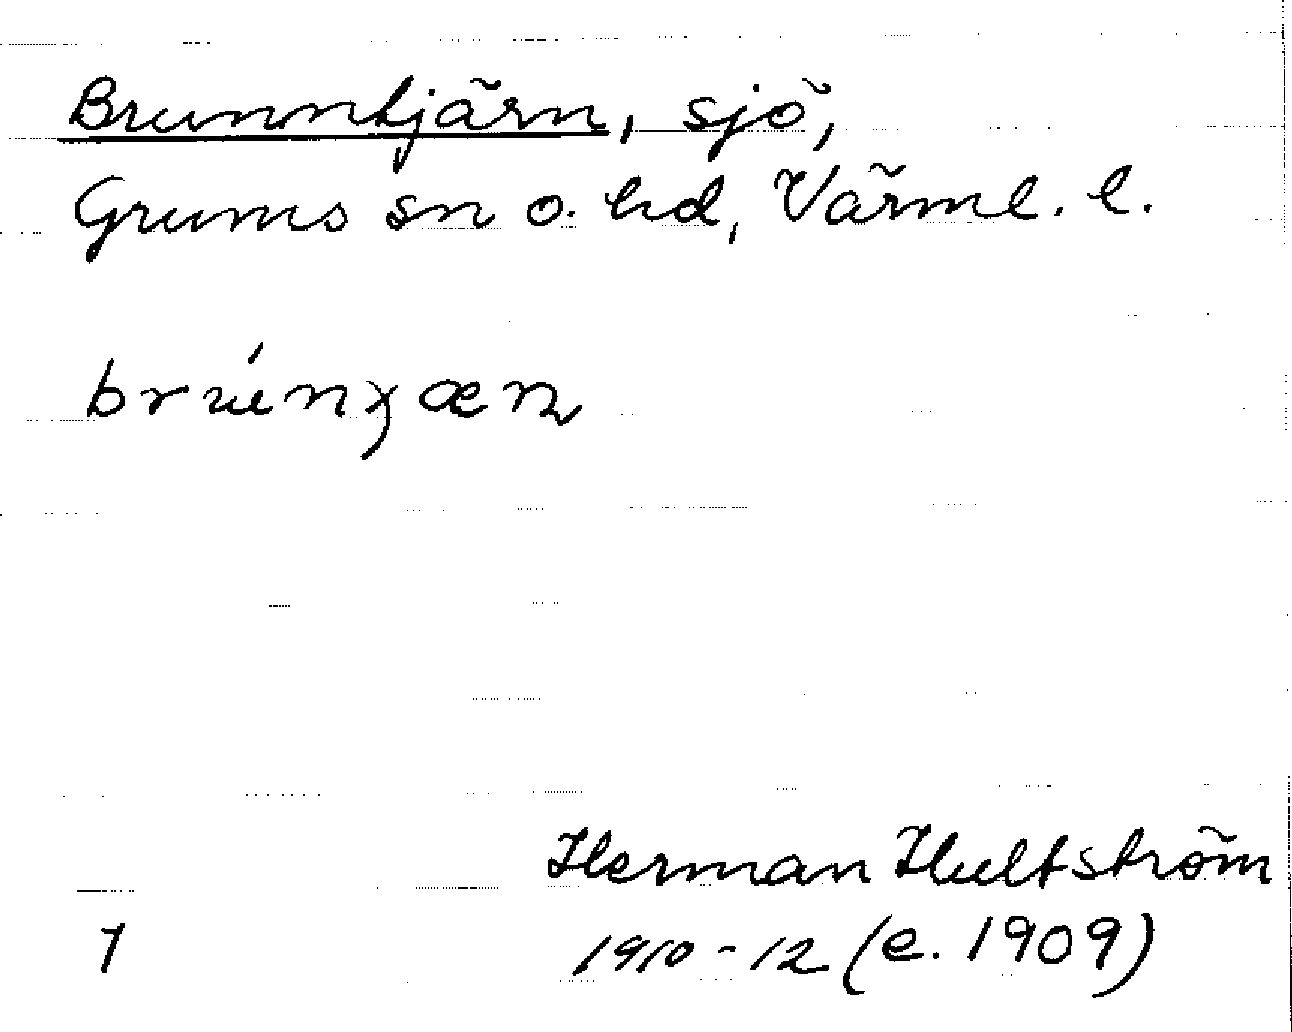 Brunntjärn, sjö,
Grums sn o. hd, Värml. l.
Herman Hultström
1 1910-12 (e. 1909)